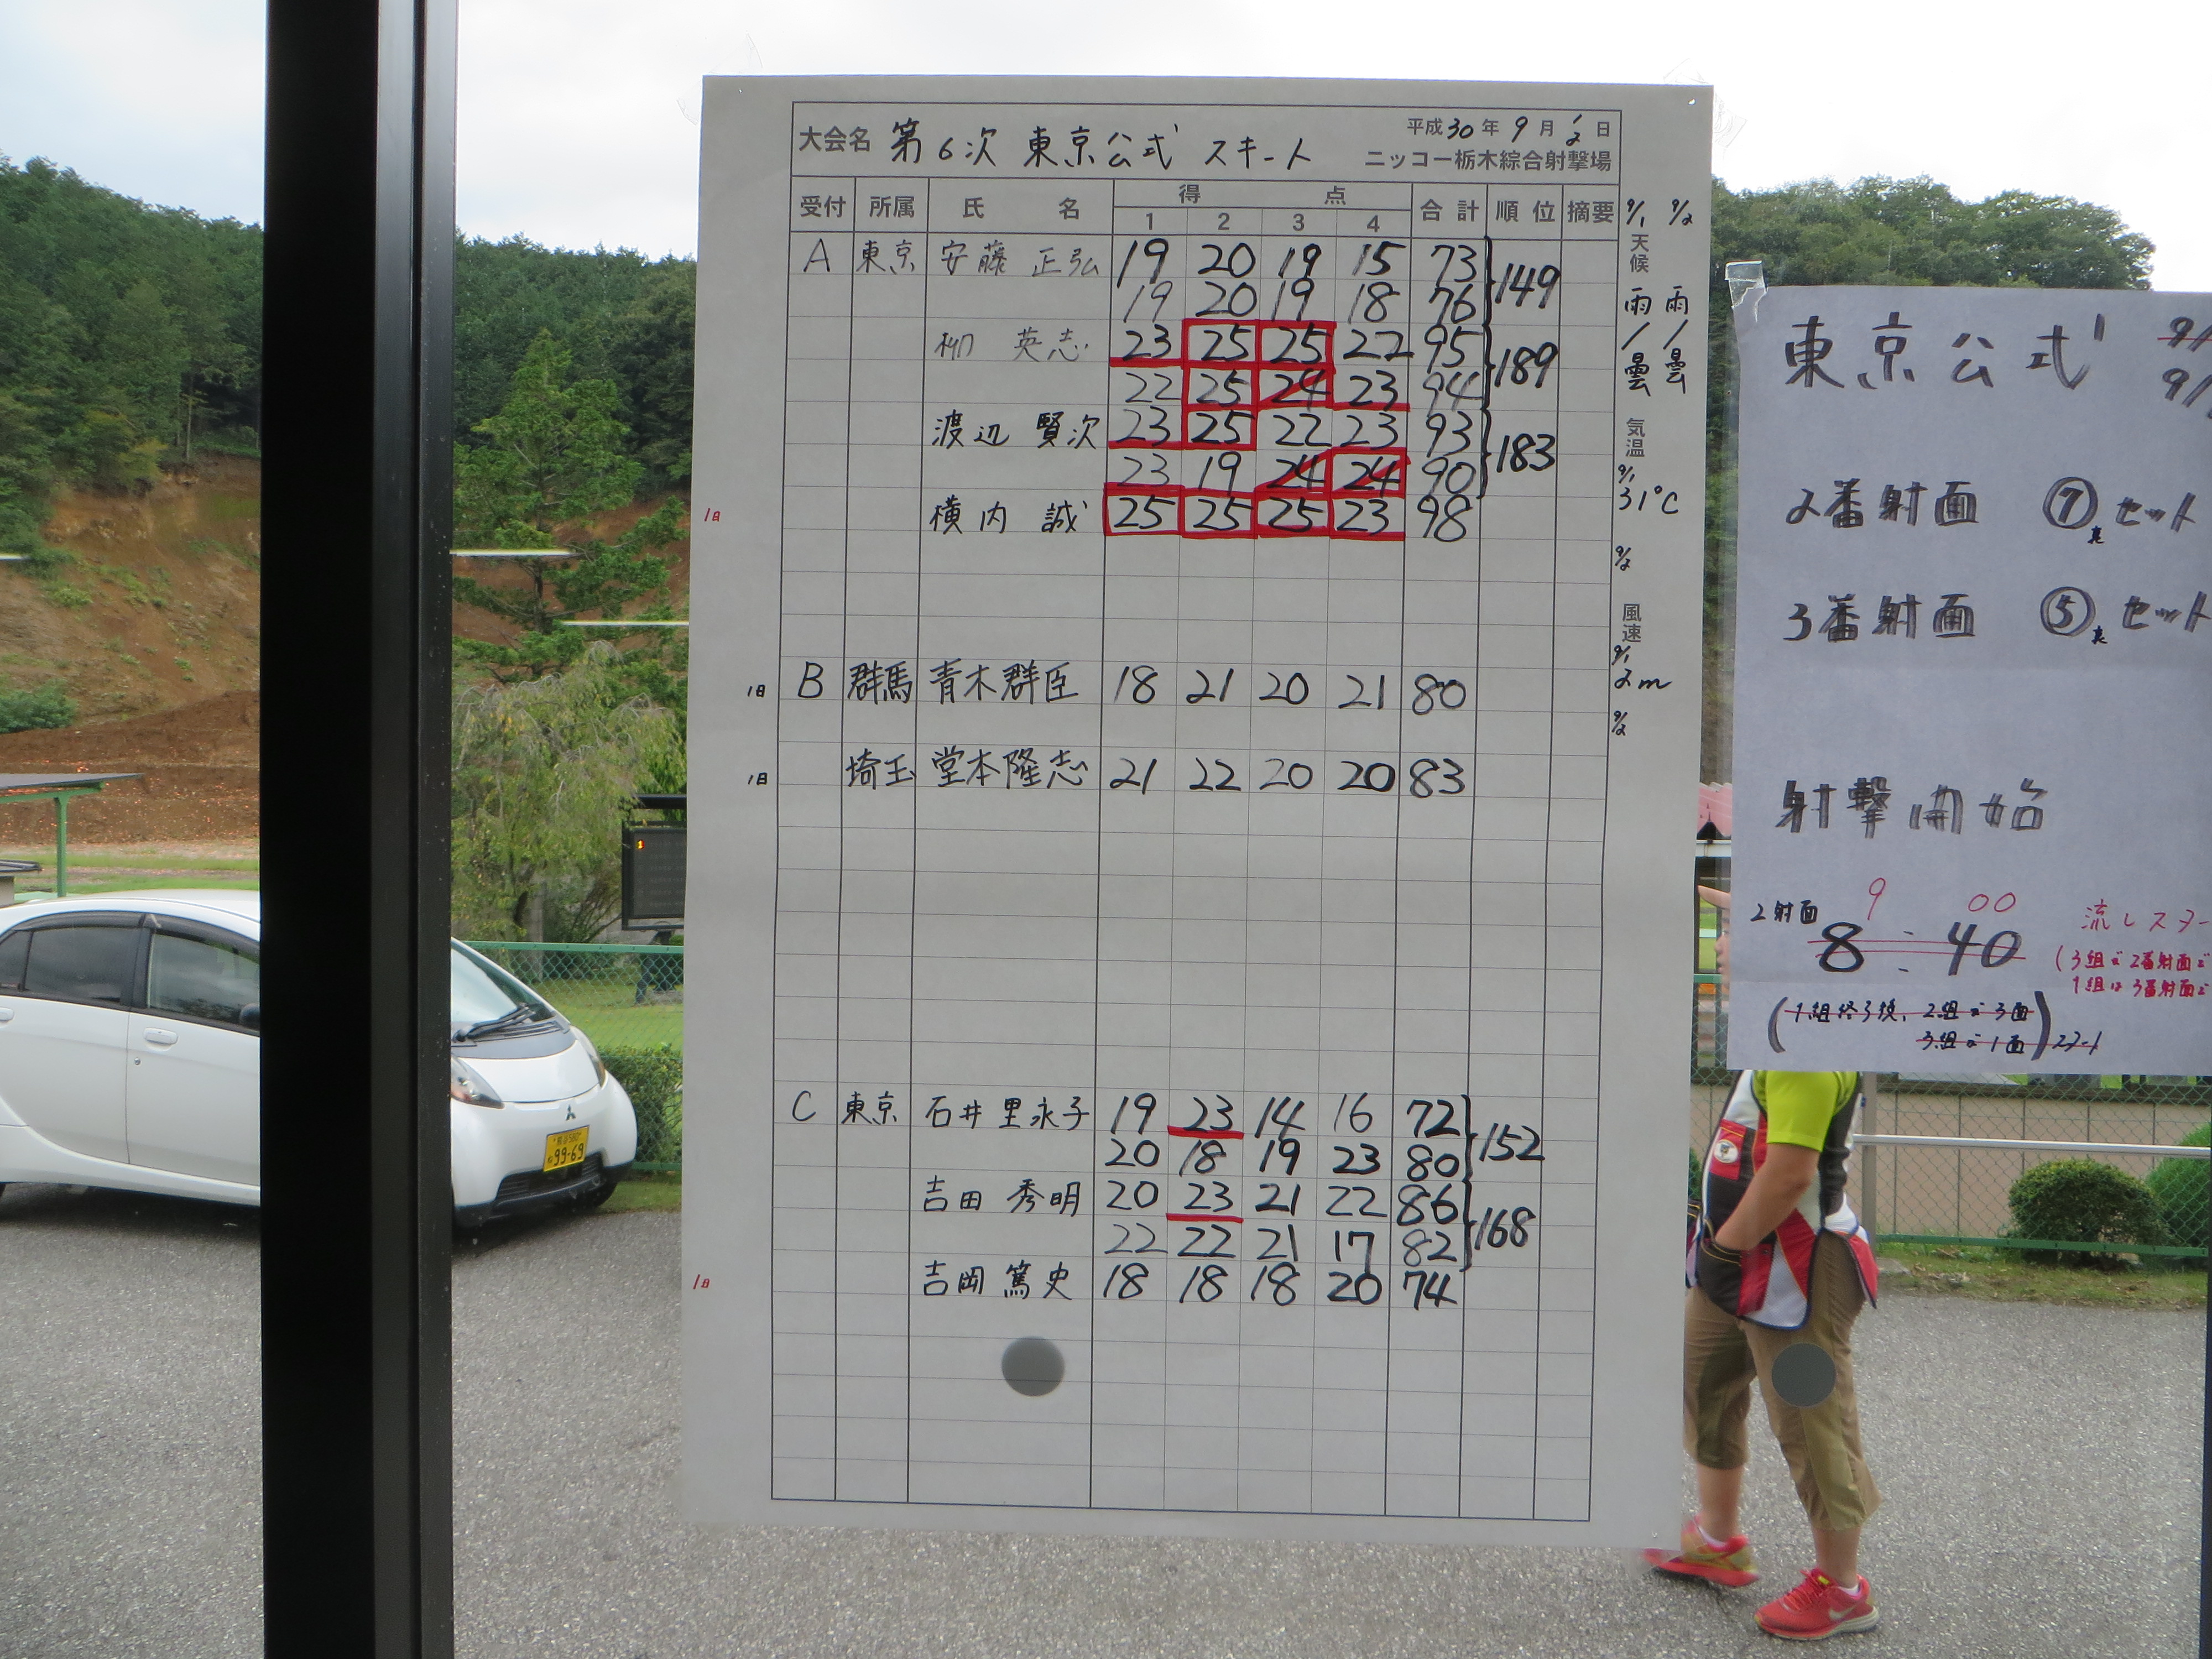 大会名 第6次 東京公式 スキート
平成30年9月1/2日
ニッコー栃木綜合射撃場
受付 所属 氏名 得点 合計 順位 摘要
1 2 3 4
A 東京 安藤 正弘 19 20 19 15 73
19 20 19 18 76 149
柳 英志 23 25 25 22 95
22 25 24 23 94 189
渡辺 賢次 23 25 22 23 93
23 19 24 24 90 183
1日 横内 誠 25 25 25 23 98
1日 B 群馬 青木群臣 18 21 20 21 80
1日 埼玉 堂本隆志 21 22 20 20 83
C 東京 石井 里永子 19 23 14 16 72
20 18 19 23 80 152
吉田 秀明 20 23 21 22 86
22 22 21 17 82 168
1日 吉岡 篤史 18 18 18 20 74
9/1 9/2
天候
雨/曇 雨/曇
気温
9/1
31℃
9/2
風速
9/1
2m
9/2
東京公式 9/
9/
2番射面 ⑦ セット
3番射面 ⑤ セット
射撃開始
9 00
2射面 8:40
流しスター
(3組で2番射面で
1組は3番射面で
(1組終了後、2組で3面
3組で1面)
99-69